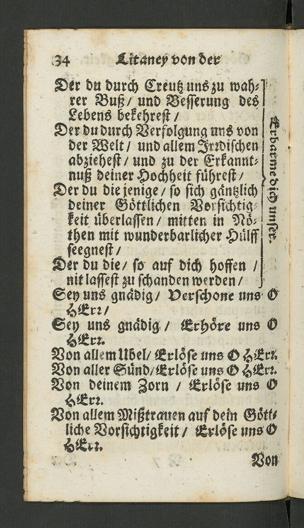 34 Litaney von der
Der du durch Creutz uns zu wah-
rer Buß/ und Besserung des
Lebens bekehrest/
Der du durch Verfolgung uns von
der Welt/ und allem Irrdischen
abziehest/ und zu der Erkannt-
nuß deiner Hochheit führest/
Der du die jenige/ so sich gäntzlich
deiner Göttlichen Vorsichtig-
keit überlassen/ mitten in Nö-
then mit wunderbarlicher Hülff
seegnest/
Der du die/ so auf dich hoffen/
nit lassest zu schanden werden/
Erbarme dich unser.
Sey uns gnädig/ Verschone uns O
HErr/
Sey uns gnädig/ Erhöre uns O
HErr.
Von allem Ubel/ Erlöse uns O HErr.
Von aller Sünd/ Erlöse uns O HErr.
Von deinem Zorn/ Erlöse uns O
HErr.
Von allem Mißtrauen auf dein Gött-
liche Vorsichtigkeit/ Erlöse uns O
HErr.
Von